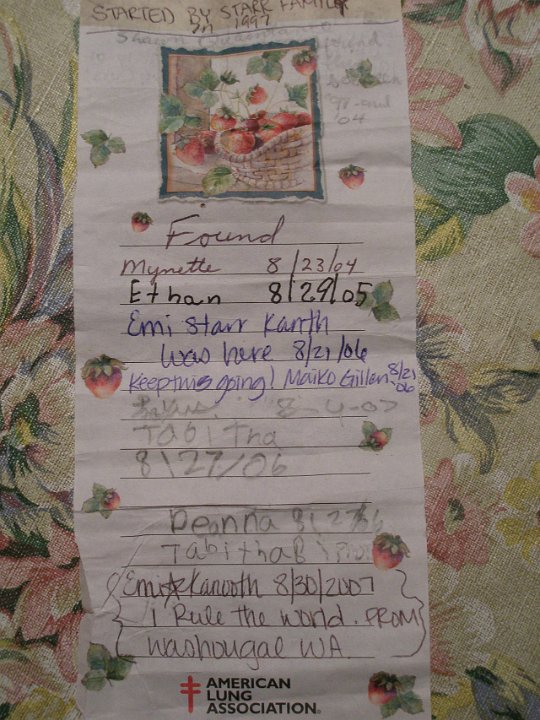 STARTED BY STARR FAMILY
IN 1997
Sharon
found
97 and
04
Found
Mynette 8/23/04
Ethan 8/29/05
Emi Starr Kanth
was here 8/21/06
Keep this going! Maiko Gillen 8/21
06
8-4-07
TABITHA
8/27/06
Deanna 8/27/06
TabithaB
Emi Kanooth 8/30/2007
I Rule the world. FROM
Washougal WA.
AMERICAN
LUNG
ASSOCIATION®